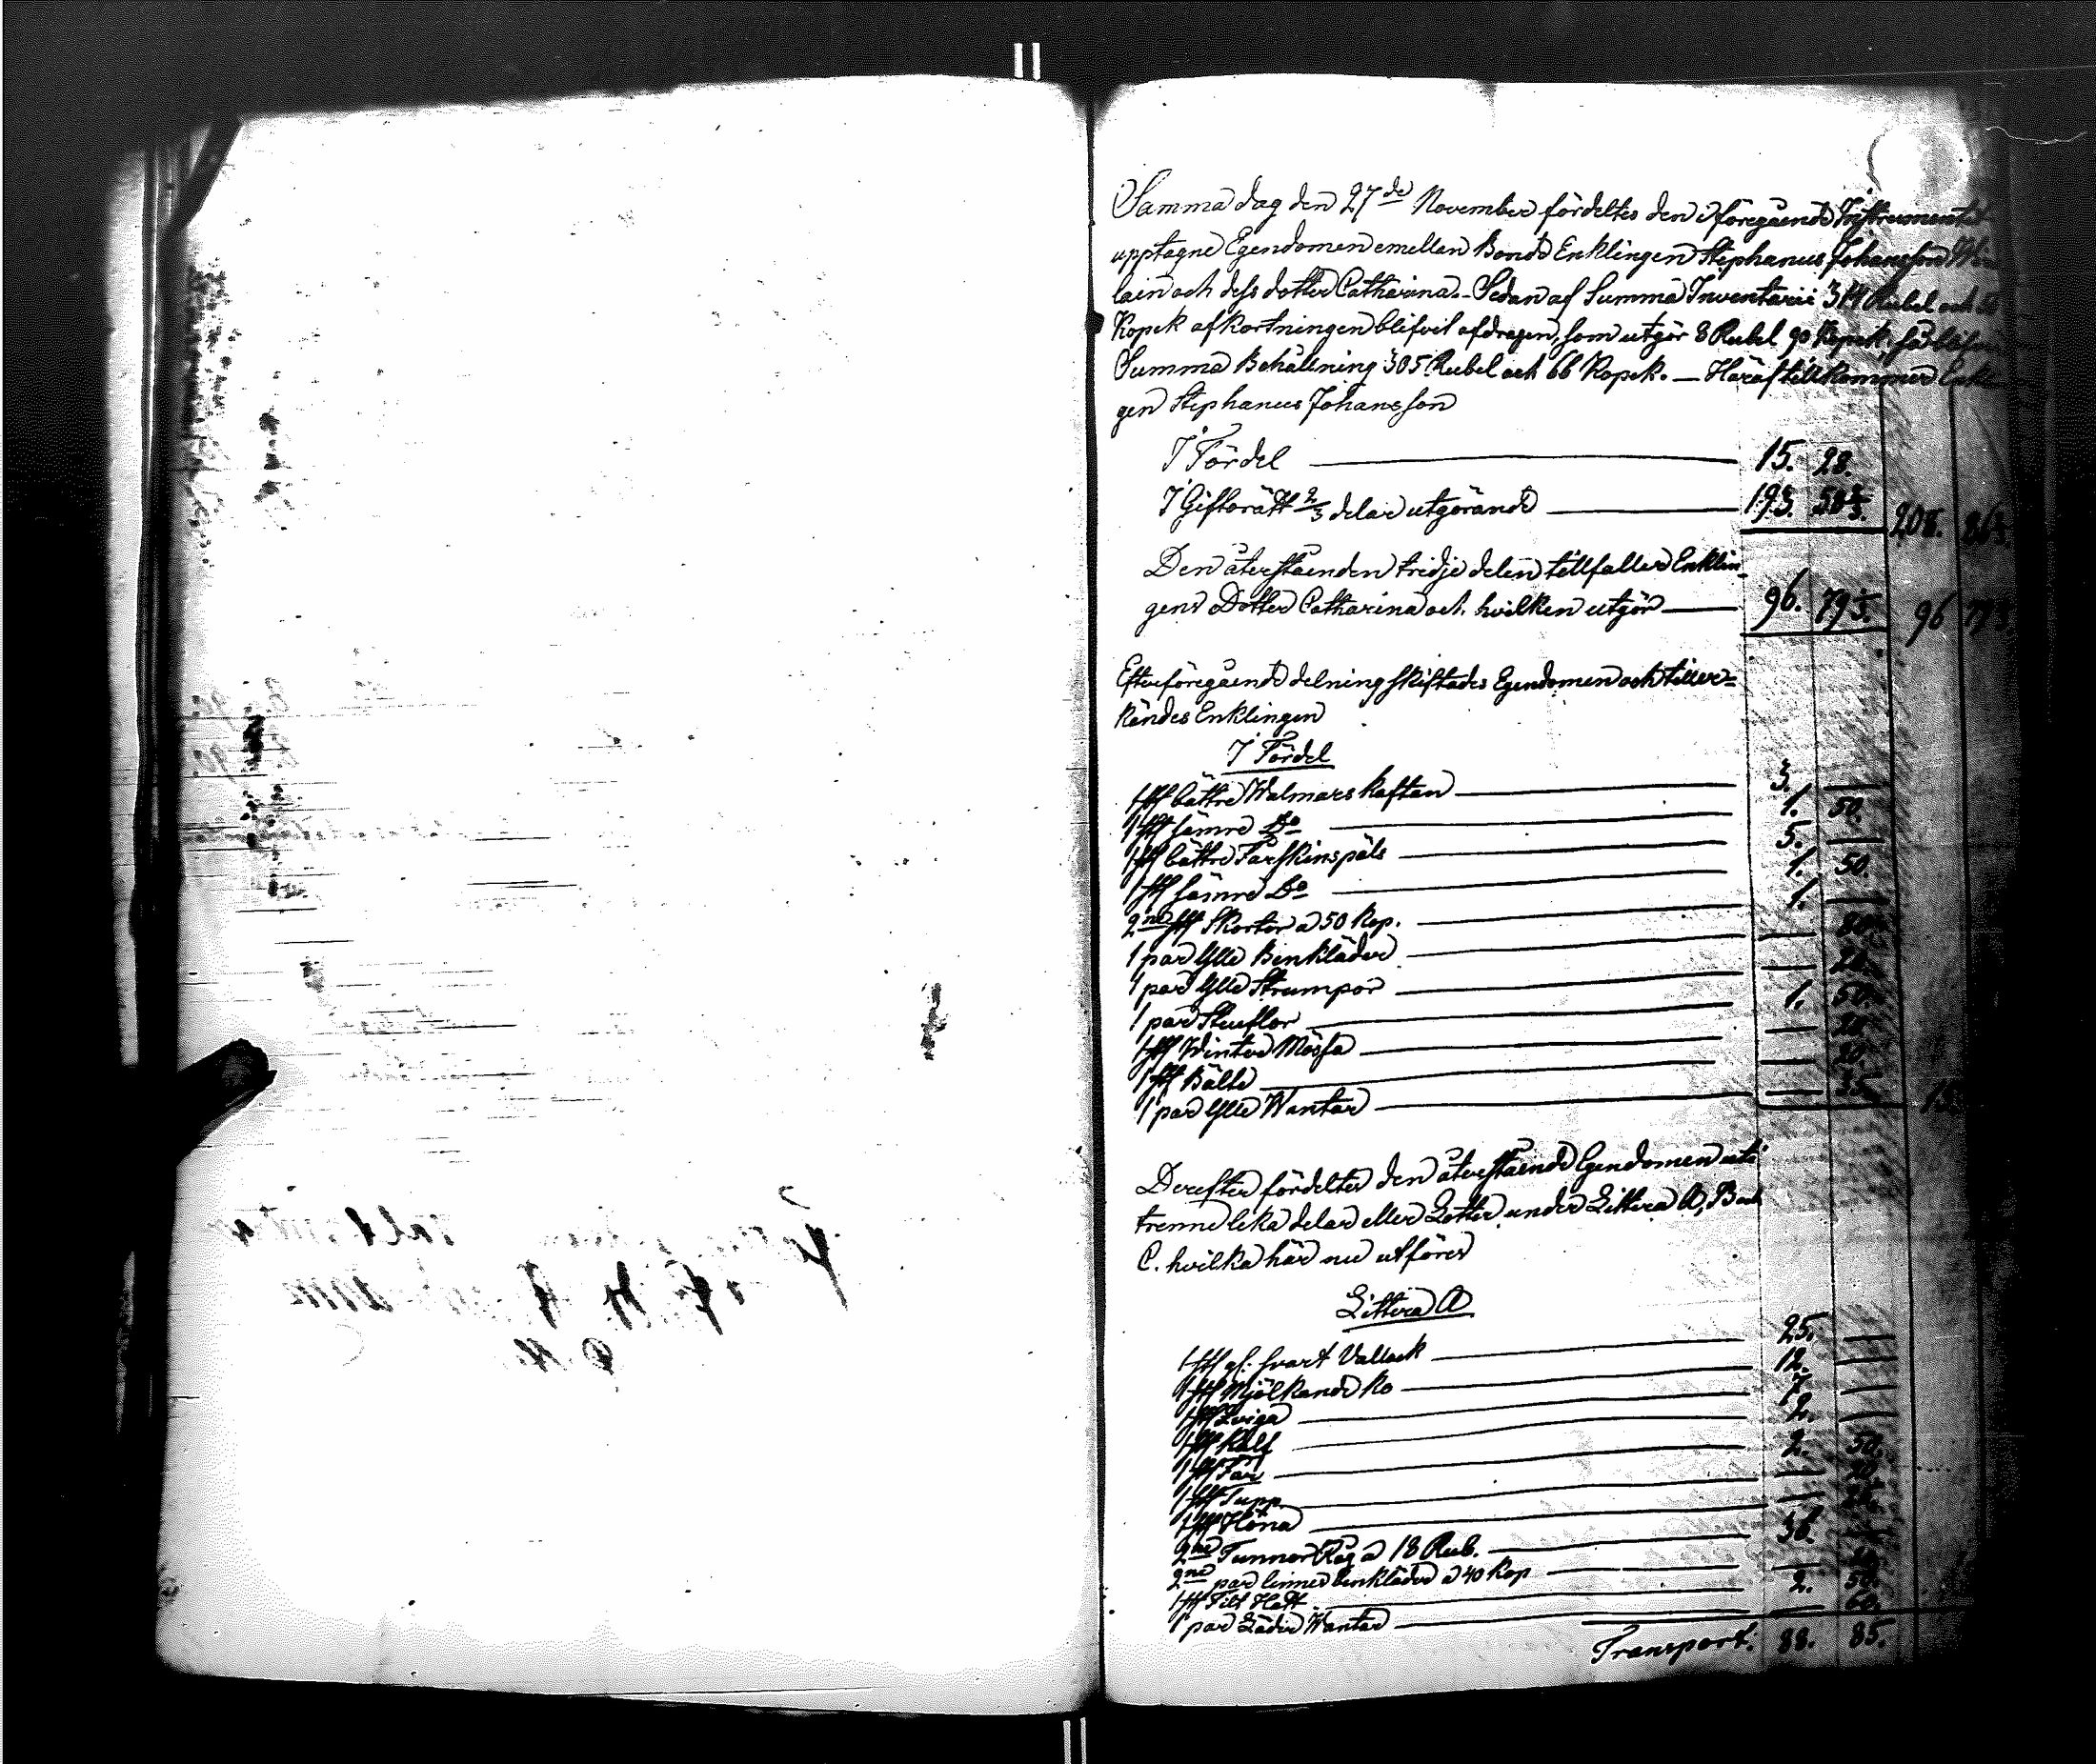 Samma dag den 27de November fördeltes den i föregående Instrumentet
upptagne Egendomen emellan Bonde Enklingen Stephanus Johansson
lain och dess dotter Catharina. - Sedan af Summa Inventarii 314 Rubel och
Kopek afkortningen blifvit afdragen, som utgör 8 Rubel 90 Kopek, så blifver
Summa Behållning 305 Rubel och 66 Kopek. — Häraf tillkommer Enklin
gen Stephanus Johansson
I Fördel — 15. 28.
I Giftorätt 2/3 delar utgörande — 193. 58 2/3. 208. 86 2/3
Den återstående tridje delen tillfaller Enklin-
gens Dotter Catharina och hvilken utgör — 96. 79 1/3. 96 79 1/3
Efter föregående delning skiftades Egendomen och tiller=
kändes Enklingen
I Fördel
1 st bättre Walmars Kaftan — 3. —
1 st sämre Do — 1. 50.
1 st bättre Fårskinspäls — 5. —
1 st sämre Do — 1. 50.
2ne st Skortor a 50 Kop. — 1. —
1 par Ylle Benkläder — — 80
1 par Ylle Strumpor —
1 par Stueflor — 1. 50.
1 st Winter Mössa —
1 st Bälte — — 20.
1 par Ylle Wantar — — 35 15.
Derefter fördeltes den återstående Egendomen uti
trenne lika delar eller Lotter under Littera A, B och
C. hvilka här nu utföres
Littera A
1 st gl: svart Vallack — 25. —
1 st Mjölkande ko — 12. —
1 st Qviga — 7. —
1 st Kalf — 2. —
1 st Får — 2. 50.
1 st Tupp — — 20
1 st Höna — — 25.
2ne Tunnor Råg a 18 Rub. — 36. —
2ne par linnes benkläder a 40 Kop — — 80.
1 st Filt Hatt — 2. 50.
1 par Läder Wantar — — 60.
Transport. 88. 85.